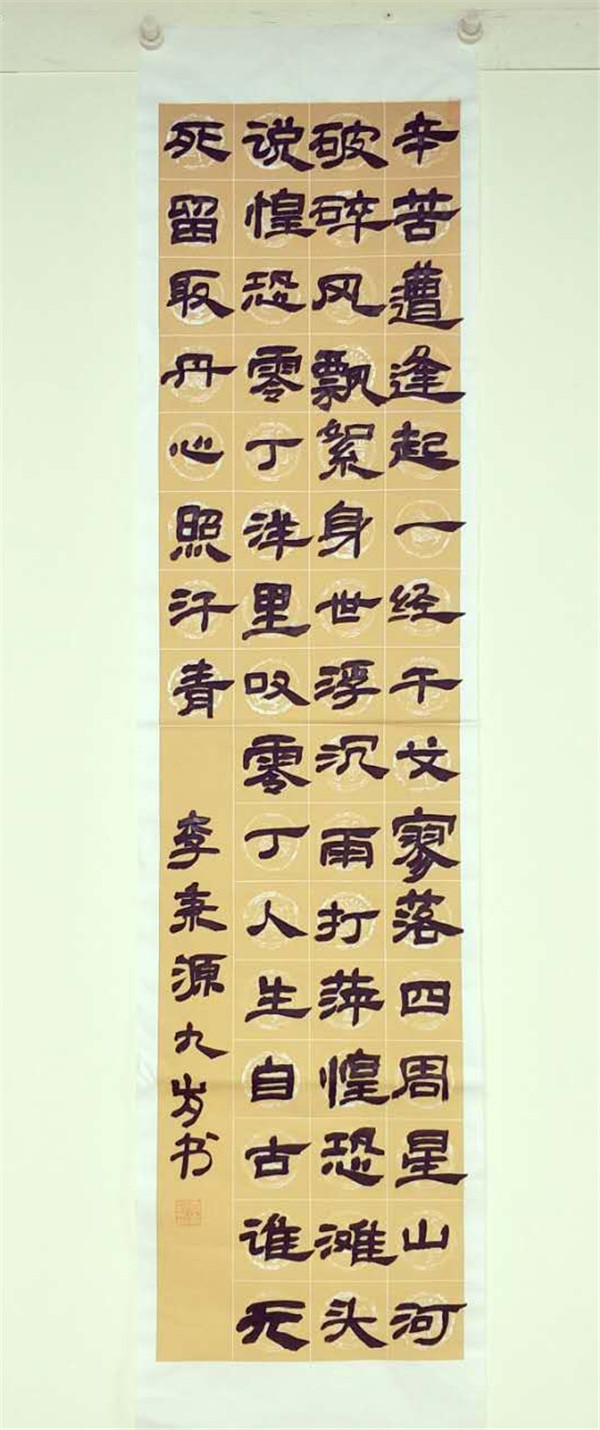 辛苦遭逢起一经干戈寥落四周星山河
破碎风飘絮身世浮沉雨打萍惶恐滩头
说惶恐零丁洋里叹零丁人生自古谁无
死留取丹心照汗青
李秉源九岁书